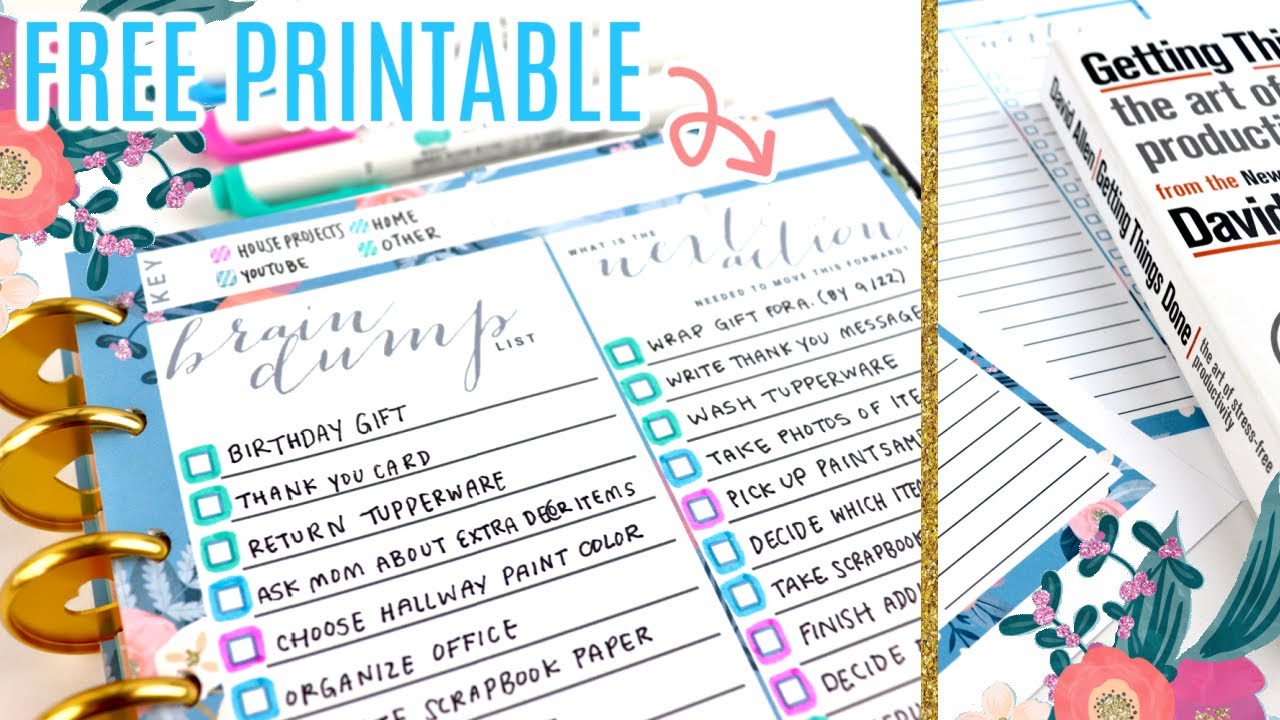 FREE PRINTABLE
KEY
HOUSE PROJECTS
HOME
YOUTUBE
OTHER
brain
dump
LIST
BIRTHDAY GIFT
THANK YOU CARD
RETURN TUPPERWARE
ASK MOM ABOUT EXTRA DECOR ITEMS
CHOOSE HALLWAY PAINT COLOR
ORGANIZE OFFICE
SCRAPBOOK PAPER
WHAT IS THE
next
action
NEEDED TO MOVE THIS FORWARD?
WRAP GIFT FOR A. (BY 9/22)
WRITE THANK YOU MESSAGE
WASH TUPPERWARE
TAKE PHOTOS OF ITE
PICK UP PAINT SAMP
DECIDE WHICH ITE
TAKE SCRAPBOOK
FINISH ADD
DECIDE
Getting Thi
the art of
producti
from the New
David
David Allen | Getting Things Done | the art of stress-free
productivity